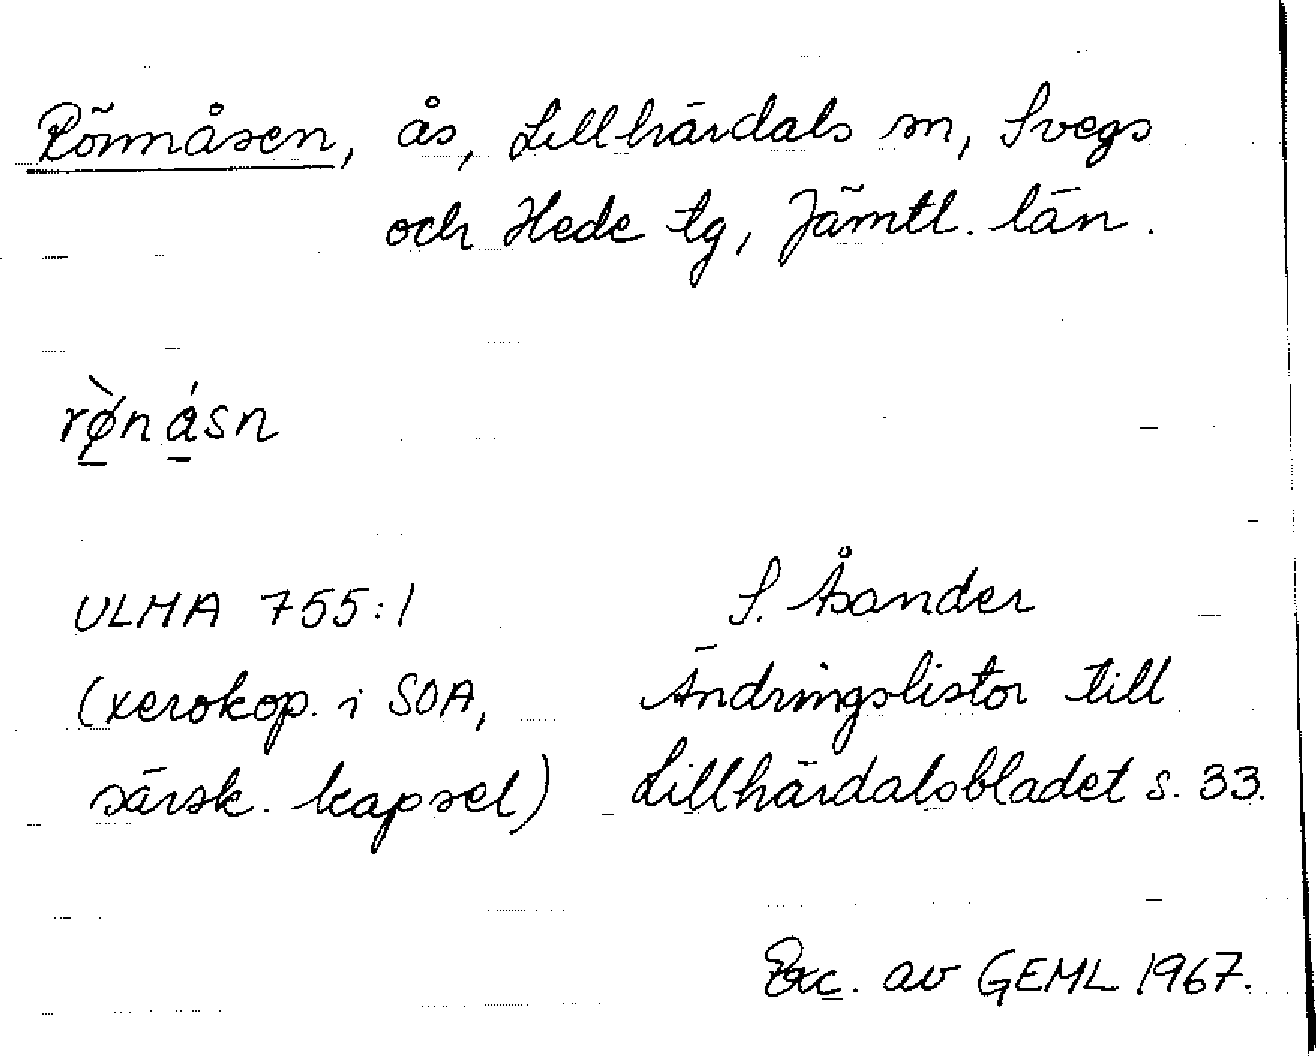 Rönnåsen, ås, Lillhärdals sn, Svegs
och Hede tg, Jämtl. län.
rø̀násn
ULMA 755:1
(xerokop. i SOA,
särsk. kapsel)
S. Åsander
Ändringslistor till
Lillhärdalsbladet s. 33.
Exc. av GEML 1967.